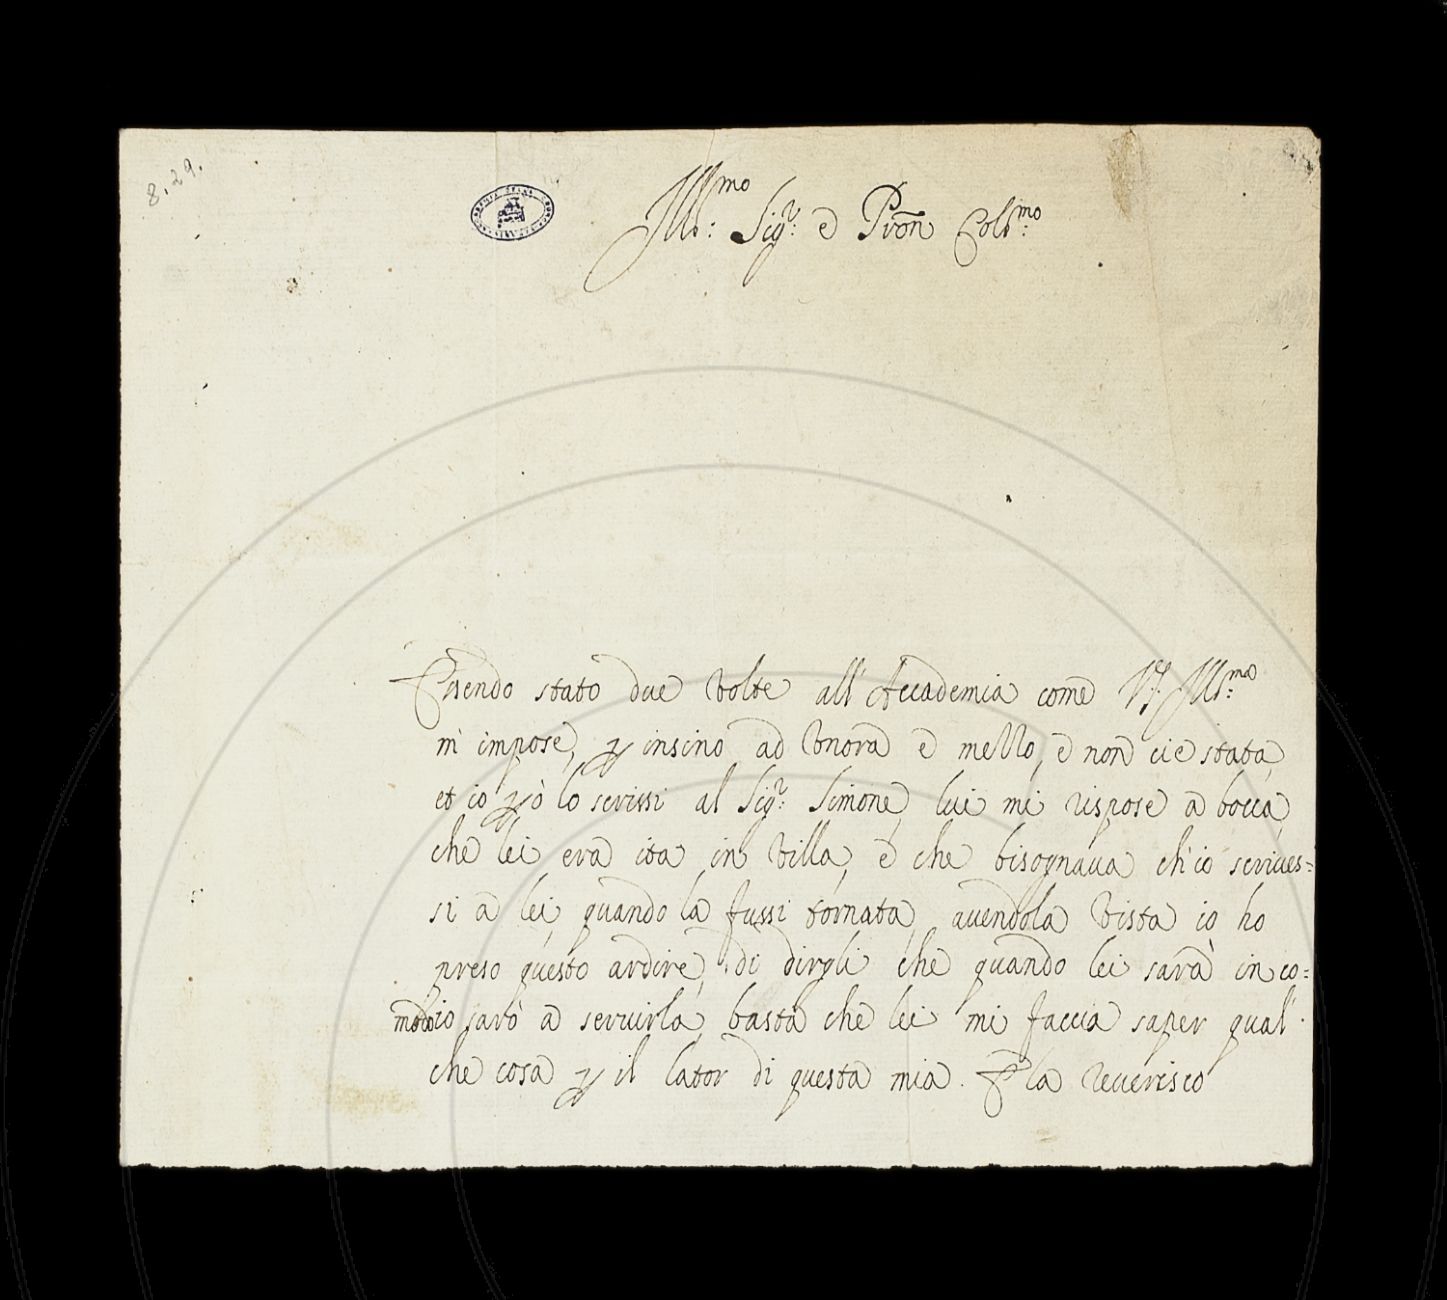 8.29.
Ill:mo Sig:r e Pron Col:mo
Essendo stato due volte all'Accademia come V.S. Ill:ma
m'impose, p insino ad vnora e mezzo, e non cie stata,
et io pò lo scrissi al Sig:r Simone, lui mi rispose a bocca,
che lei era ita in villa, e che bisognaua ch'io scriues=
si a lei, quando la fussi tornata, auendola vista io ho
preso questo ardire, di dirgli che quando lei sarà in co=
modo io sarò a seruirla, basta che lei mi faccia saper qual'
che cosa p il lator di questa mia. E la reuerisco